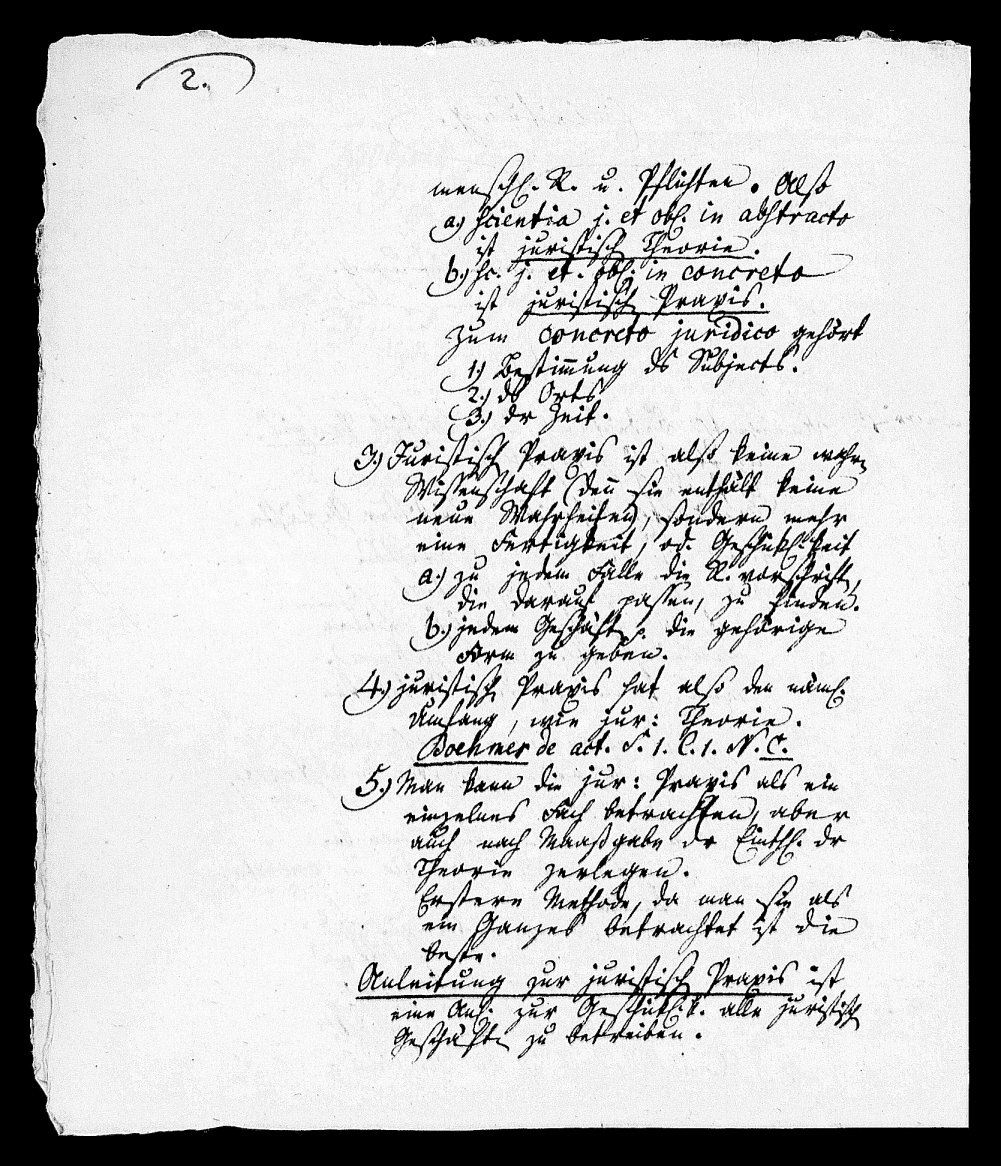 2.
menschl. R. u. Pflichten. Alß
a.) scientia j. et obl. in abstracto
ist juristisch Theorie.
b.) sc. j. et. obl. in concreto
ist juristisch Praxis.
Zum concreto juridico gehört
1.) Bestim̄ung ds Subjects.
2.) ds Orts
3.) dr Zeit.
3.) Juristisch Praxis ist alß keine wahre
Wissenschaft (den̄ sie enthält keine
neue Wahrheiten), sondern mehr
eine Fertigkeit, od. Geschikl.keit
a.) zu jedem Falle die R.vorschriften,
die darauf passen, zu finden.
b.) jedem Geschäft p. die gehörige
Form zu geben.
4.) juristisch Praxis hat alß den näml.
Umfang, wie jur: Theorie.
Boehmer de act. S. 1. C. 1. N. C.
5.) Man kann die jur: Praxis als ein
einzelnes Fach betrachten, aber
auch nach Maaßgabe dr Einthl. dr
Theorie zerlegen.
Erstere Methode, da man sie als
ein Ganzes betrachtet ist die
beste.
Anleitung zur juristisch Praxis ist
eine Anl. zur Geschikl.k. alle juristisch
Geschäfte zu betreiben.